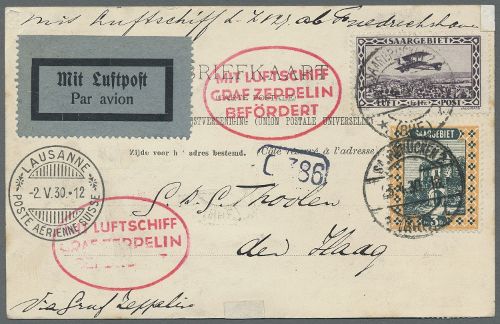 mit Luftschiff L Z 127, ab Friedrichshafen
Mit Luftpost
Par avion
BRIEFKAART
MIT LUFTSCHIFF
GRAF ZEPPELIN
BEFÖRDERT
SAARGEBIET
LUFT POST
POSTVEREENIGING (UNION POSTALE UNIVERSELLE)
Zijde voor het adres bestemd. (Côté réservé à l'adresse)
SAARGEBIET
LAUSANNE
-2.V.30.-12
POSTE AÉRIENNE SUISSE
786
MIT LUFTSCHIFF
GRAF ZEPPELIN
den Haag
Via Graf Zeppelin